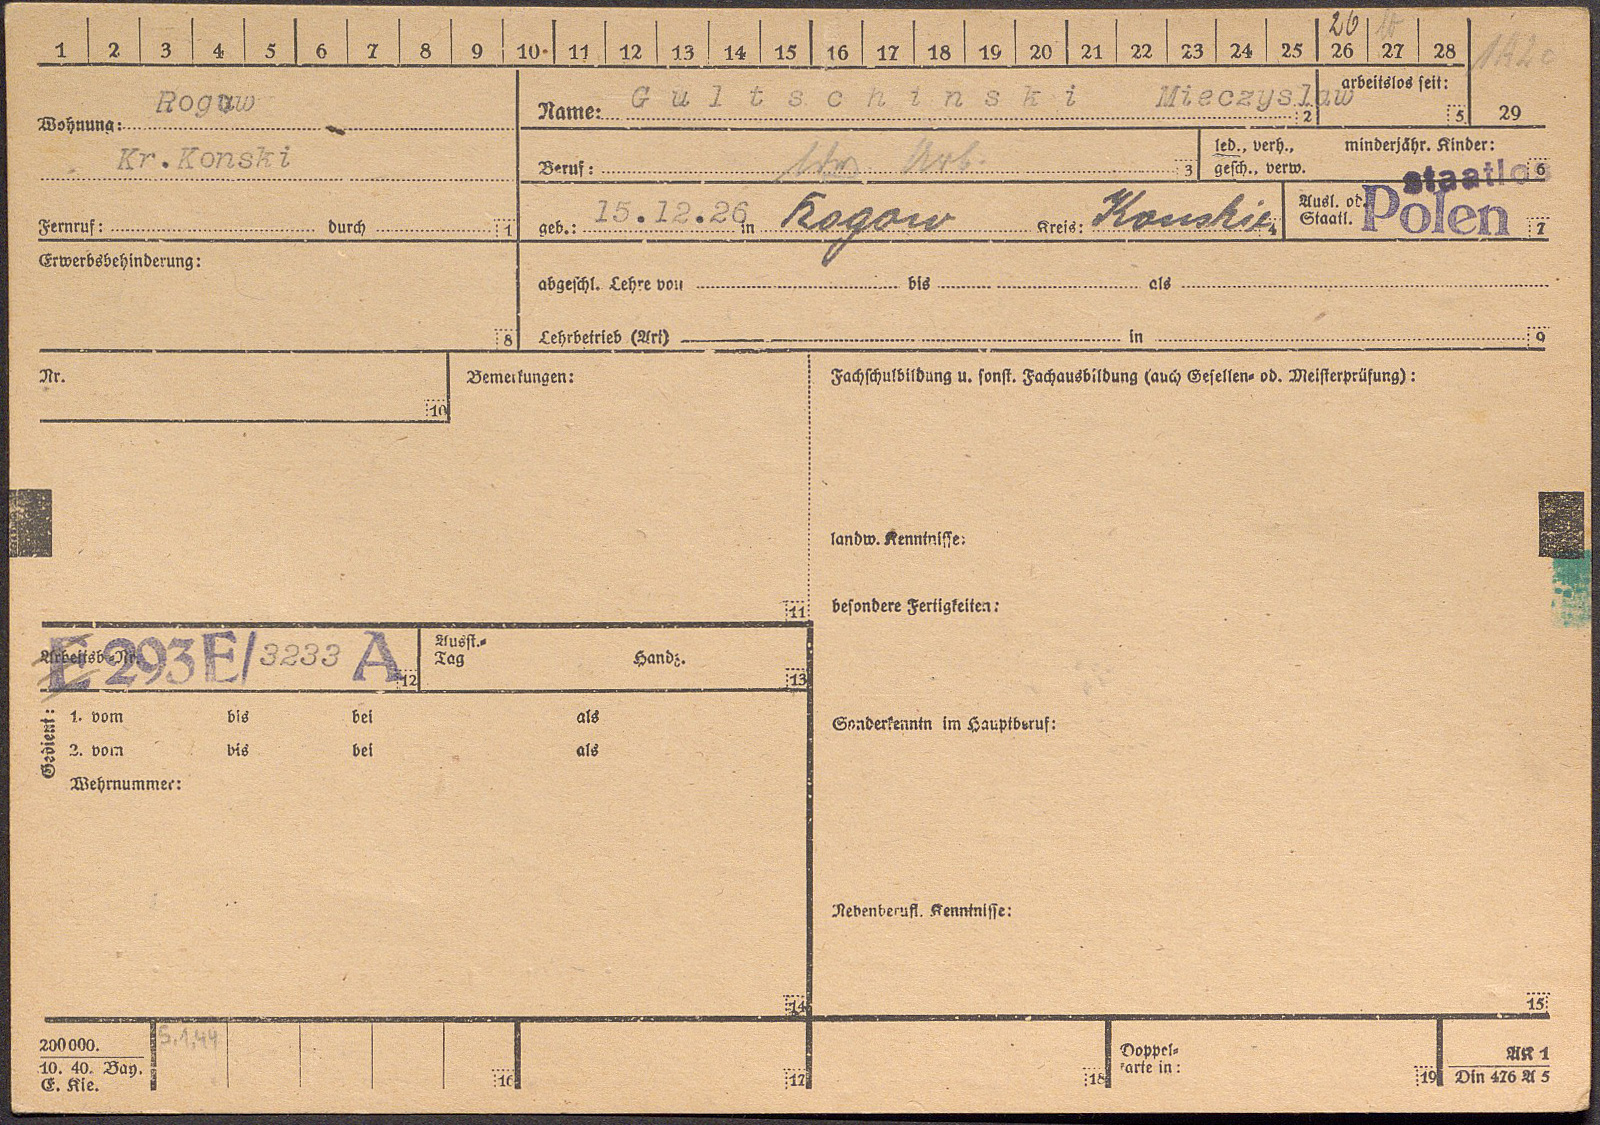 26
1 2 3 4 5 6 7 8 9 10 11 12 13 14 15 16 17 18 19 20 21 22 23 24 25 26 27 28
Wohnung: Rogow
Kr.Konski
Fernruf: durch 1
Name: Gultschinski Mieczyslaw 2
arbeitslos seit: 5
29
Beruf: Arb. 3
led., verh., gesch., verw.
minderjähr. Kinder: 6
staatlos
geb.: 15.12.26 in Rogow Kreis: Konskie 4
Ausl. od. Staatl. Polen 7
Erwerbsbehinderung: 8
abgeschl. Lehre von bis als
Lehrbetrieb (Art) in 9
Nr. 10
Bemerkungen: 11
Fachschulbildung u. sonst. Fachausbildung (auch Gesellen- od. Meisterprüfung):
landw. Kenntnisse:
besondere Fertigkeiten:
Sonderkenntn im Hauptberuf:
Nebenberufl. Kenntnisse:
15
Arbeitsb.-Nr. E 293 E/3233 A 12
Ausst.-Tag Handz. 13
Gedient:
1. vom bis bei als
2. vom bis bei als
Wehrnummer:
14
200000.
10. 40. Bay.
E. Kie.
5.1.44
16 17 18
Doppel-
karte in: 19
AK 1
Din 476 A 5